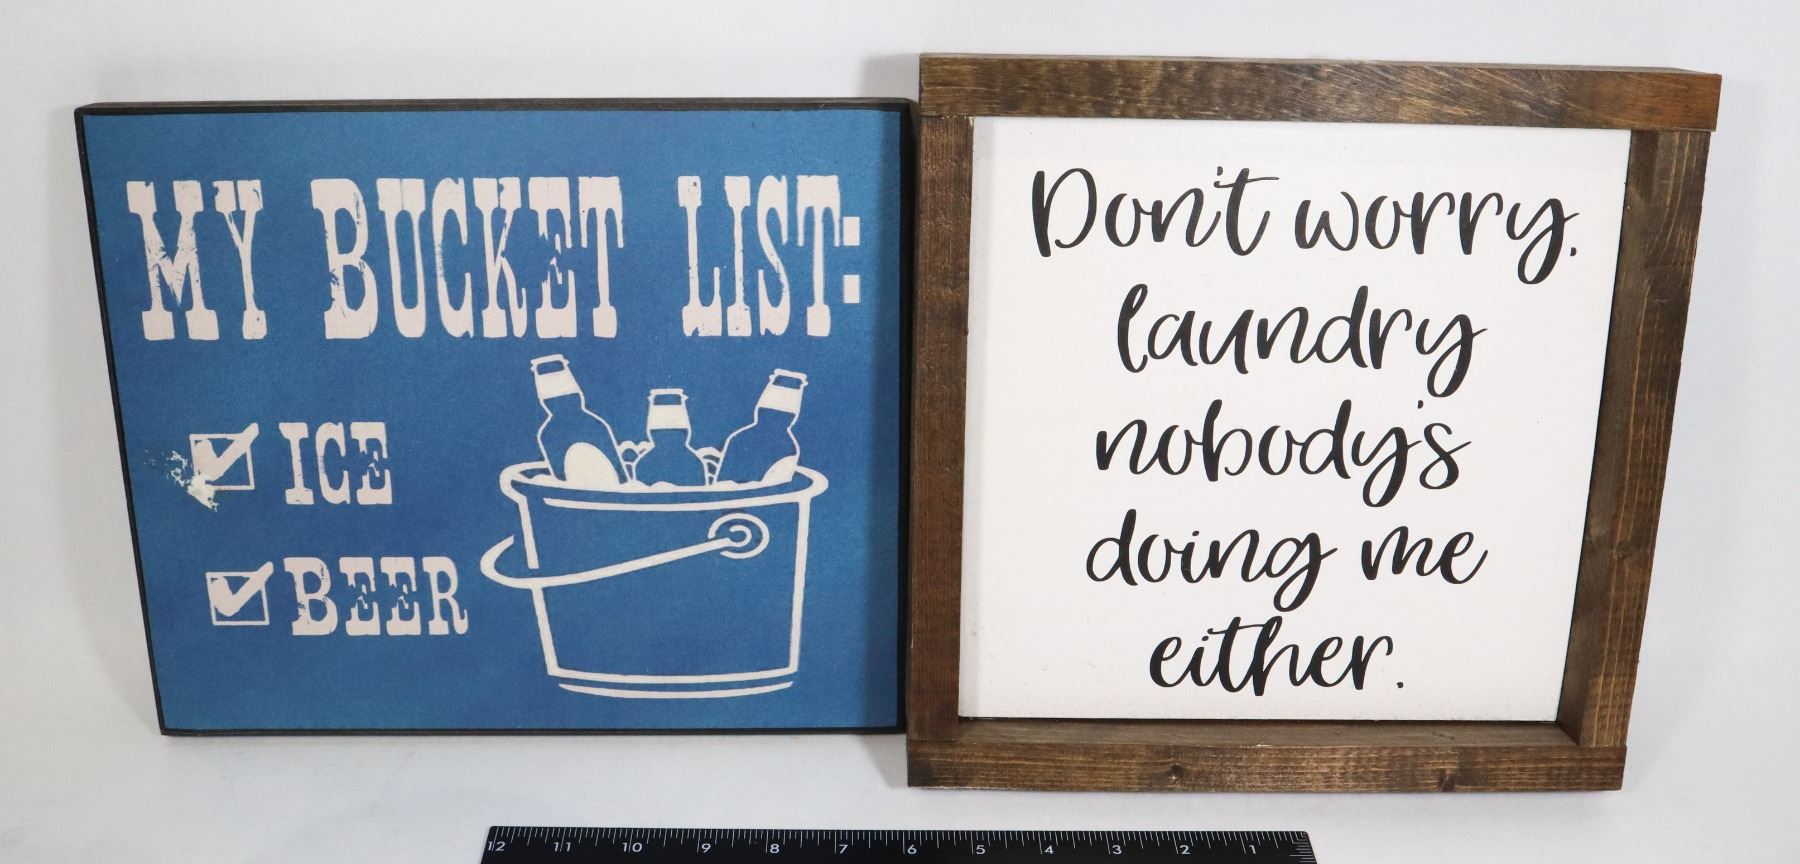 MY BUCKET LIST:
ICE
BEER
Don't worry.
laundry
nobody's
doing me
either.
12 11 10 9 8 7 6 5 4 3 2 1